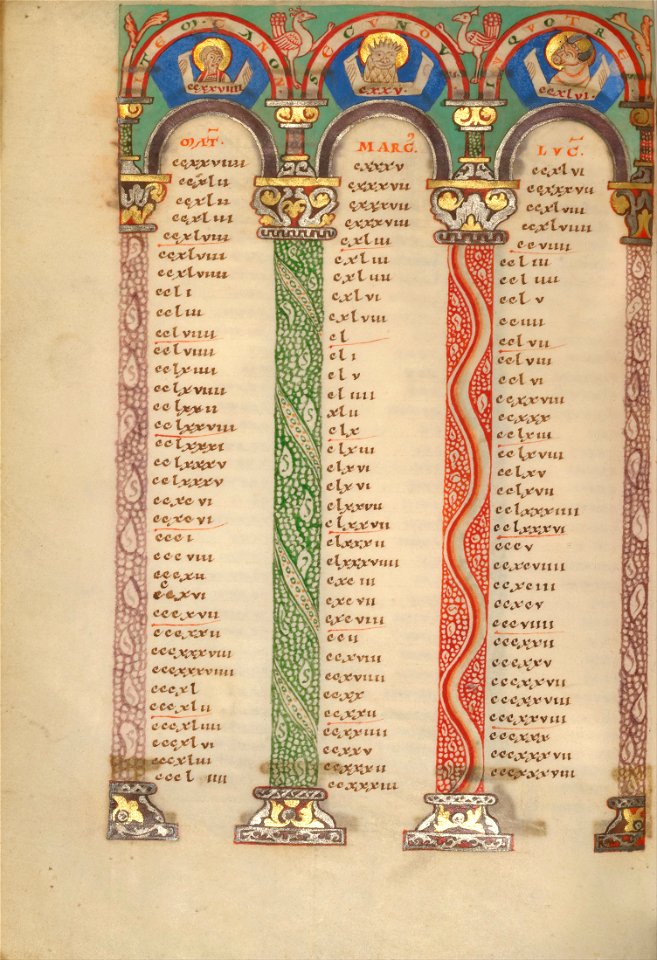 ITEM·CANON SECVNDVS IN QVO TRES
ccxxviiii
cxxv
ccxlvi
MAT·
ccxxviiii
ccxlii
ccxlii
ccxliii
ccxlviii
ccxlviiii
ccxlviiii
ccli
ccliii
cclviiii
cclviiii
cclxiiii
cclxviiii
cclxxii
cclxxviii
cclxxxi
cclxxxv
cclxxxv
ccxcvi
ccxcvi
ccci
cccviii
cccxii
cccxvi
cccxvii
cccxxii
cccxxxviii
cccxxxviiii
cccxl
cccxlii
cccxliiii
cccxlvi
cccxlviii
cccliiii
MARC
cxxxv
cxxxvii
cxxxvii
cxxxviii
cxliii
cxliii
cxliiii
cxlvi
cxlviii
cl
cli
clv
cliiii
xlii
clx
clxiii
clxvi
clxvi
clxxvii
clxxvii
clxxxii
clxxxviiii
cxciii
cxcvii
cxcviiii
ccii
ccxviii
ccxviiii
ccxx
ccxxii
ccxxiiii
ccxxv
ccxxxii
ccxxxiiii
LVC
ccxlvi
ccxxxvii
ccxlviii
ccxlviiii
ccviiii
ccliii
ccliiii
cclv
cciiii
cclvii
cclviii
cclvi
ccxxviii
ccxxx
cclxiii
cclxviii
cclxv
cclxvii
cclxxxiiii
cclxxxvi
cccv
ccxcviiii
ccxciii
cxcv
cccviiii
cccxvii
cccxxv
cccxxvii
cccxxviiii
cccxxviii
cccxxx
cccxxxvii
cccxxxviii